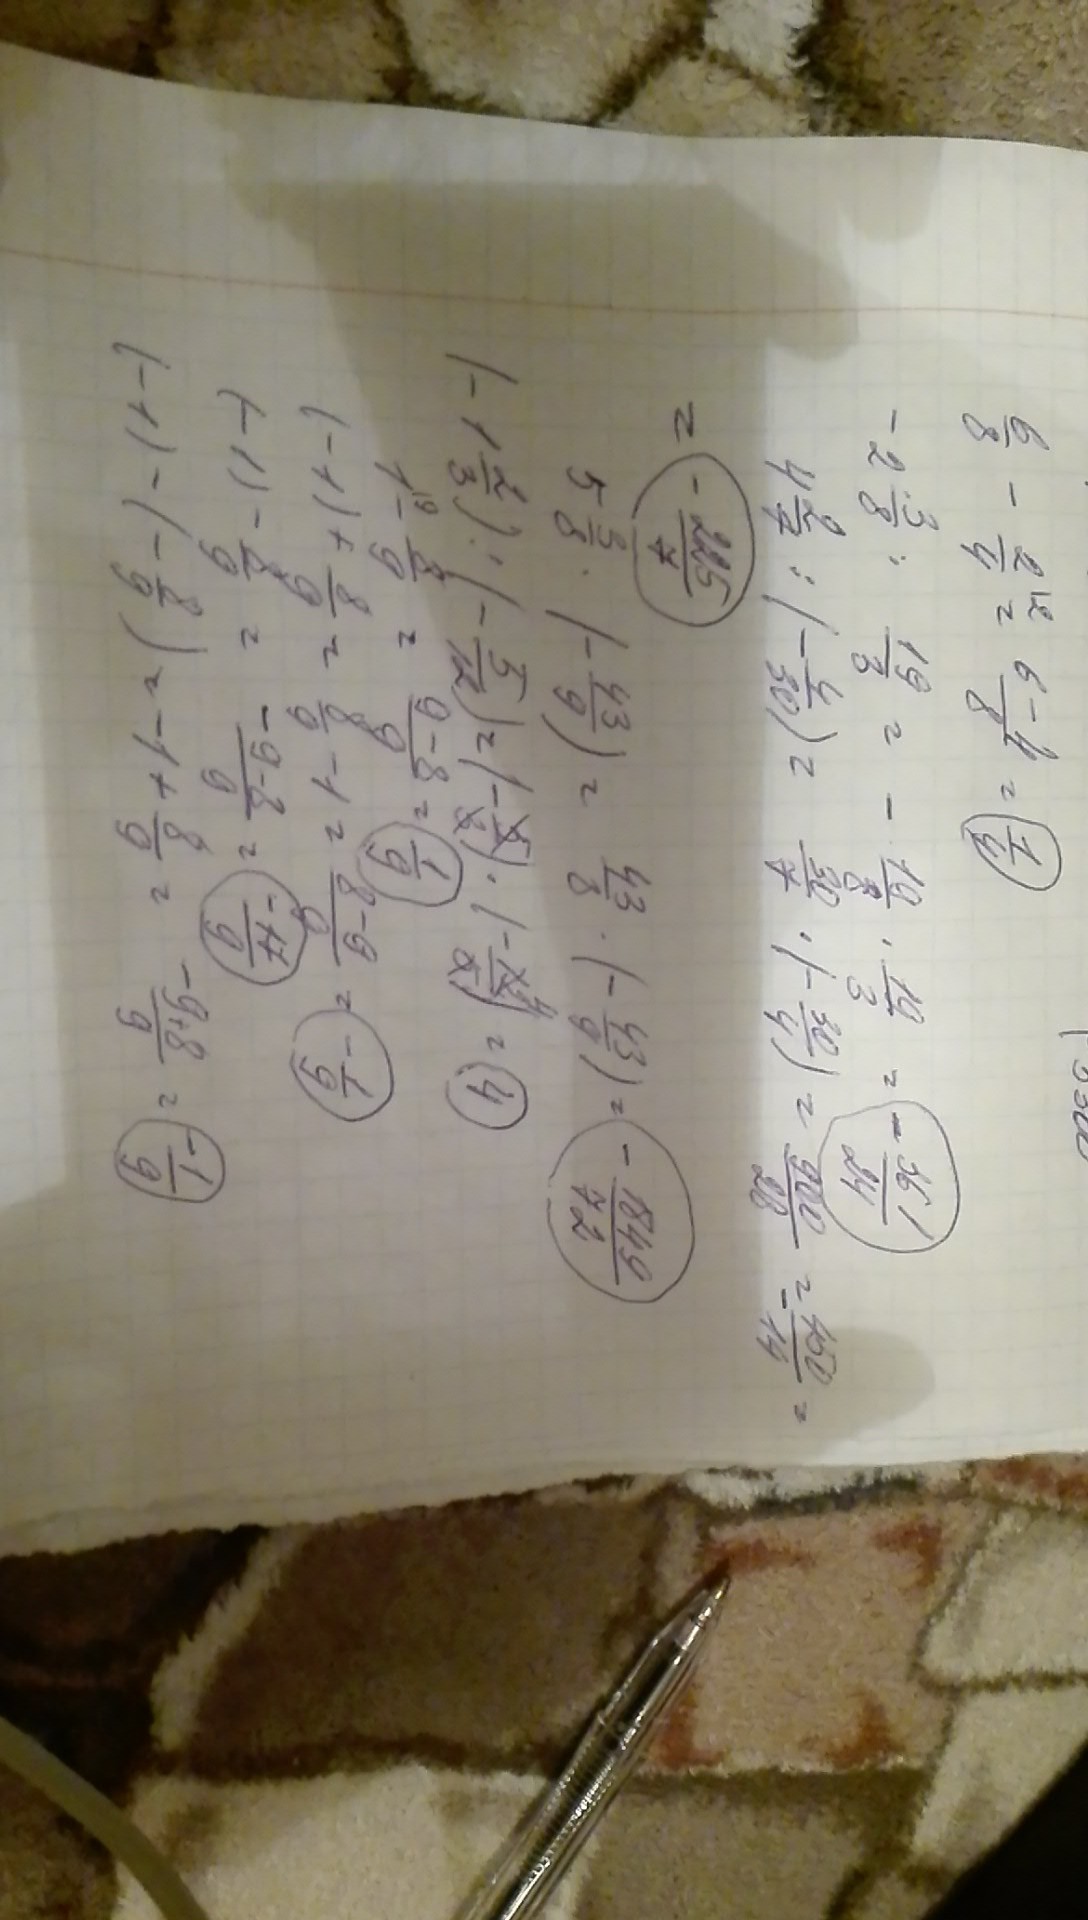 6/8 - 2/4 = 6-4/8 =
- 2 3/8 : 19/3 = - 19/8 · 19/3 = - 361/24
4 2/7 : (- 4/30) = 30/7 · (- 30/4) = 900/28 = - 450/14 =
= - 225/7
5 3/8 · (- 43/9) = 43/8 · (- 43/9) = - 1849/72
(- 1 2/3) : (- 5/12) = (- 5/3) · (- 12/5) = 4
1 - 8/9 = 9-8/9 = 1/9
(-1) + 8/9 = 8/9 - 1 = 8-9/9 = - 1/9
(-1) - 8/9 = -9-8/9 = -17/9
(-1) - (- 8/9) = -1 + 8/9 = -9+8/9 = -1/9